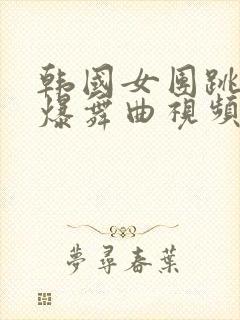 韩國女团跳
爆舞曲視頻
夢尋春葉